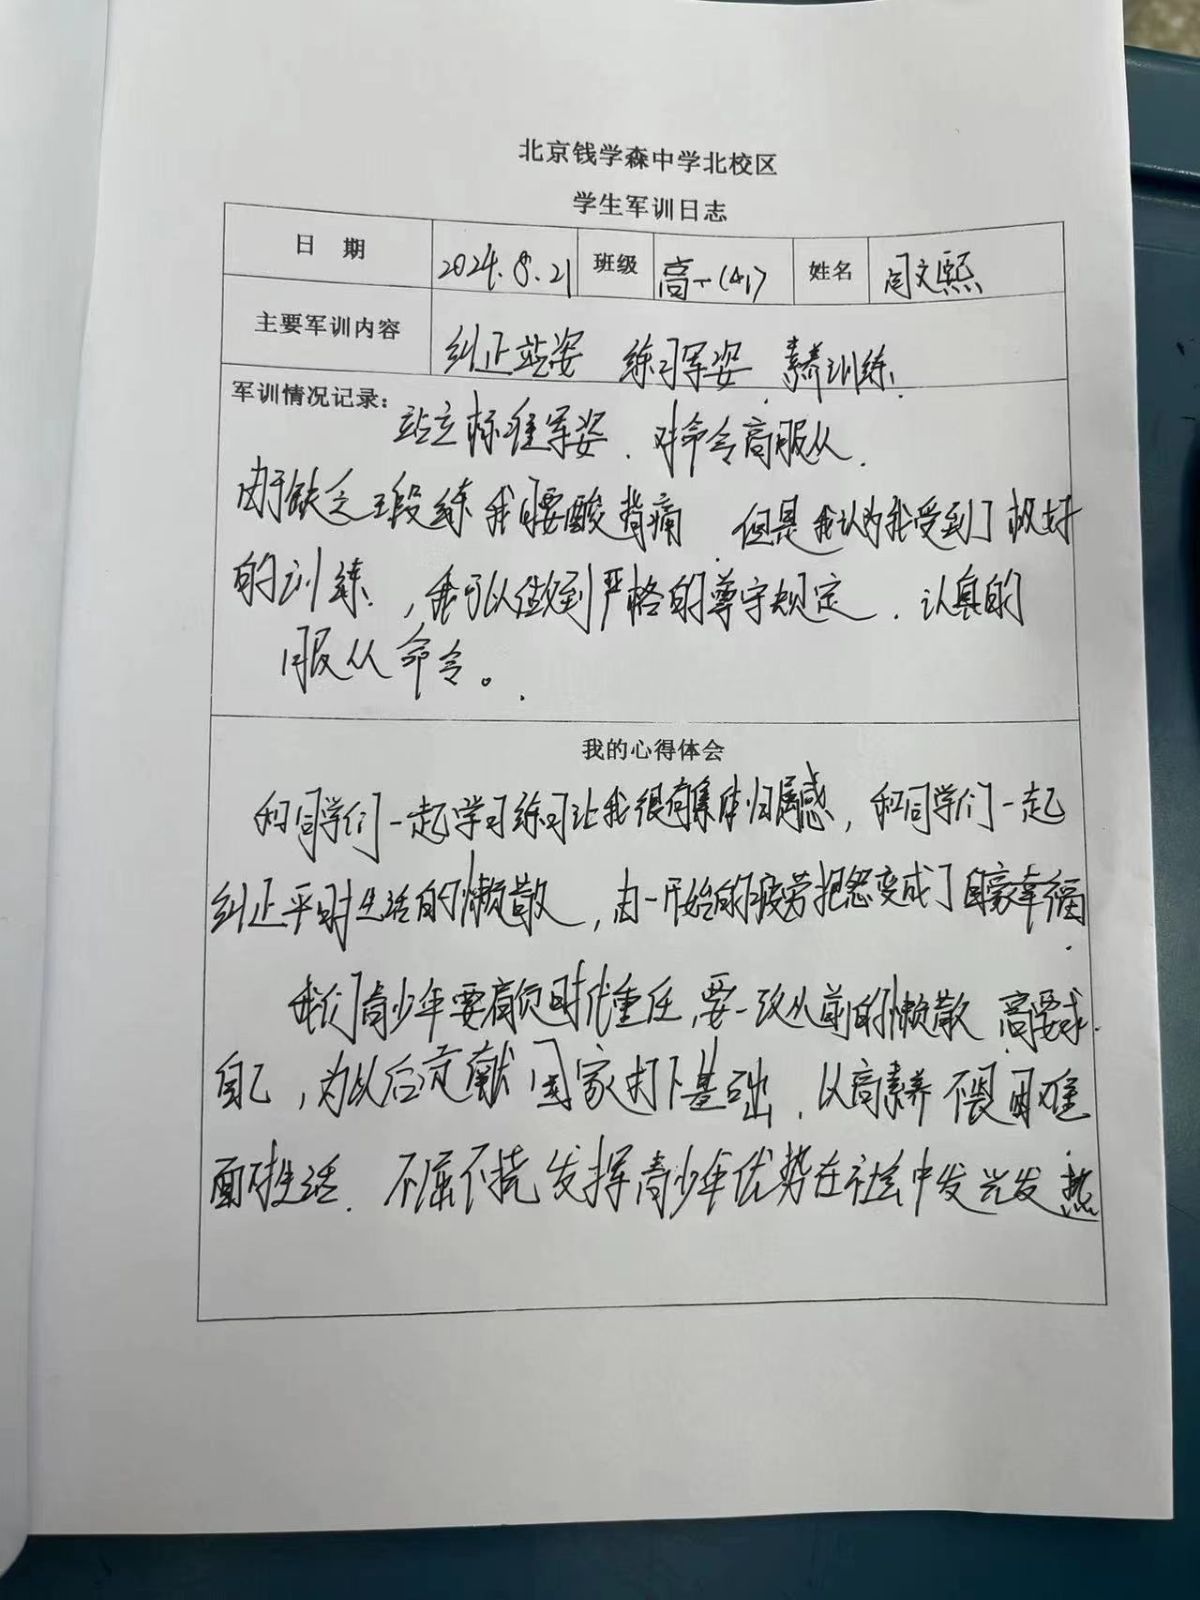 北京钱学森中学北校区
学生军训日志
日 期 2024.8.21 班级 高一(4) 姓名 闫文熙
主要军训内容 纠正站姿 练习军姿 素养训练.
军训情况记录:
站立标准军姿.对命令高服从.
由于缺乏锻练我腰酸背痛.但是我认为我受到了极好
的训练.,我可以做到严格的尊守规定.认真的
服从命令。.
我的心得体会
和同学们一起学习练习让我很有集体归属感,和同学们一起
纠正平时生活的懒散,由一开始的疲劳抱怨变成了自豪幸福.
我们青少年要肩负时代重任,要一改从前的懒散.高要求.
自己,为以后贡献国家打下基础.以高素养 不畏困难.
面对生活.不屈不挠 发挥青少年优势在社会中发光发热